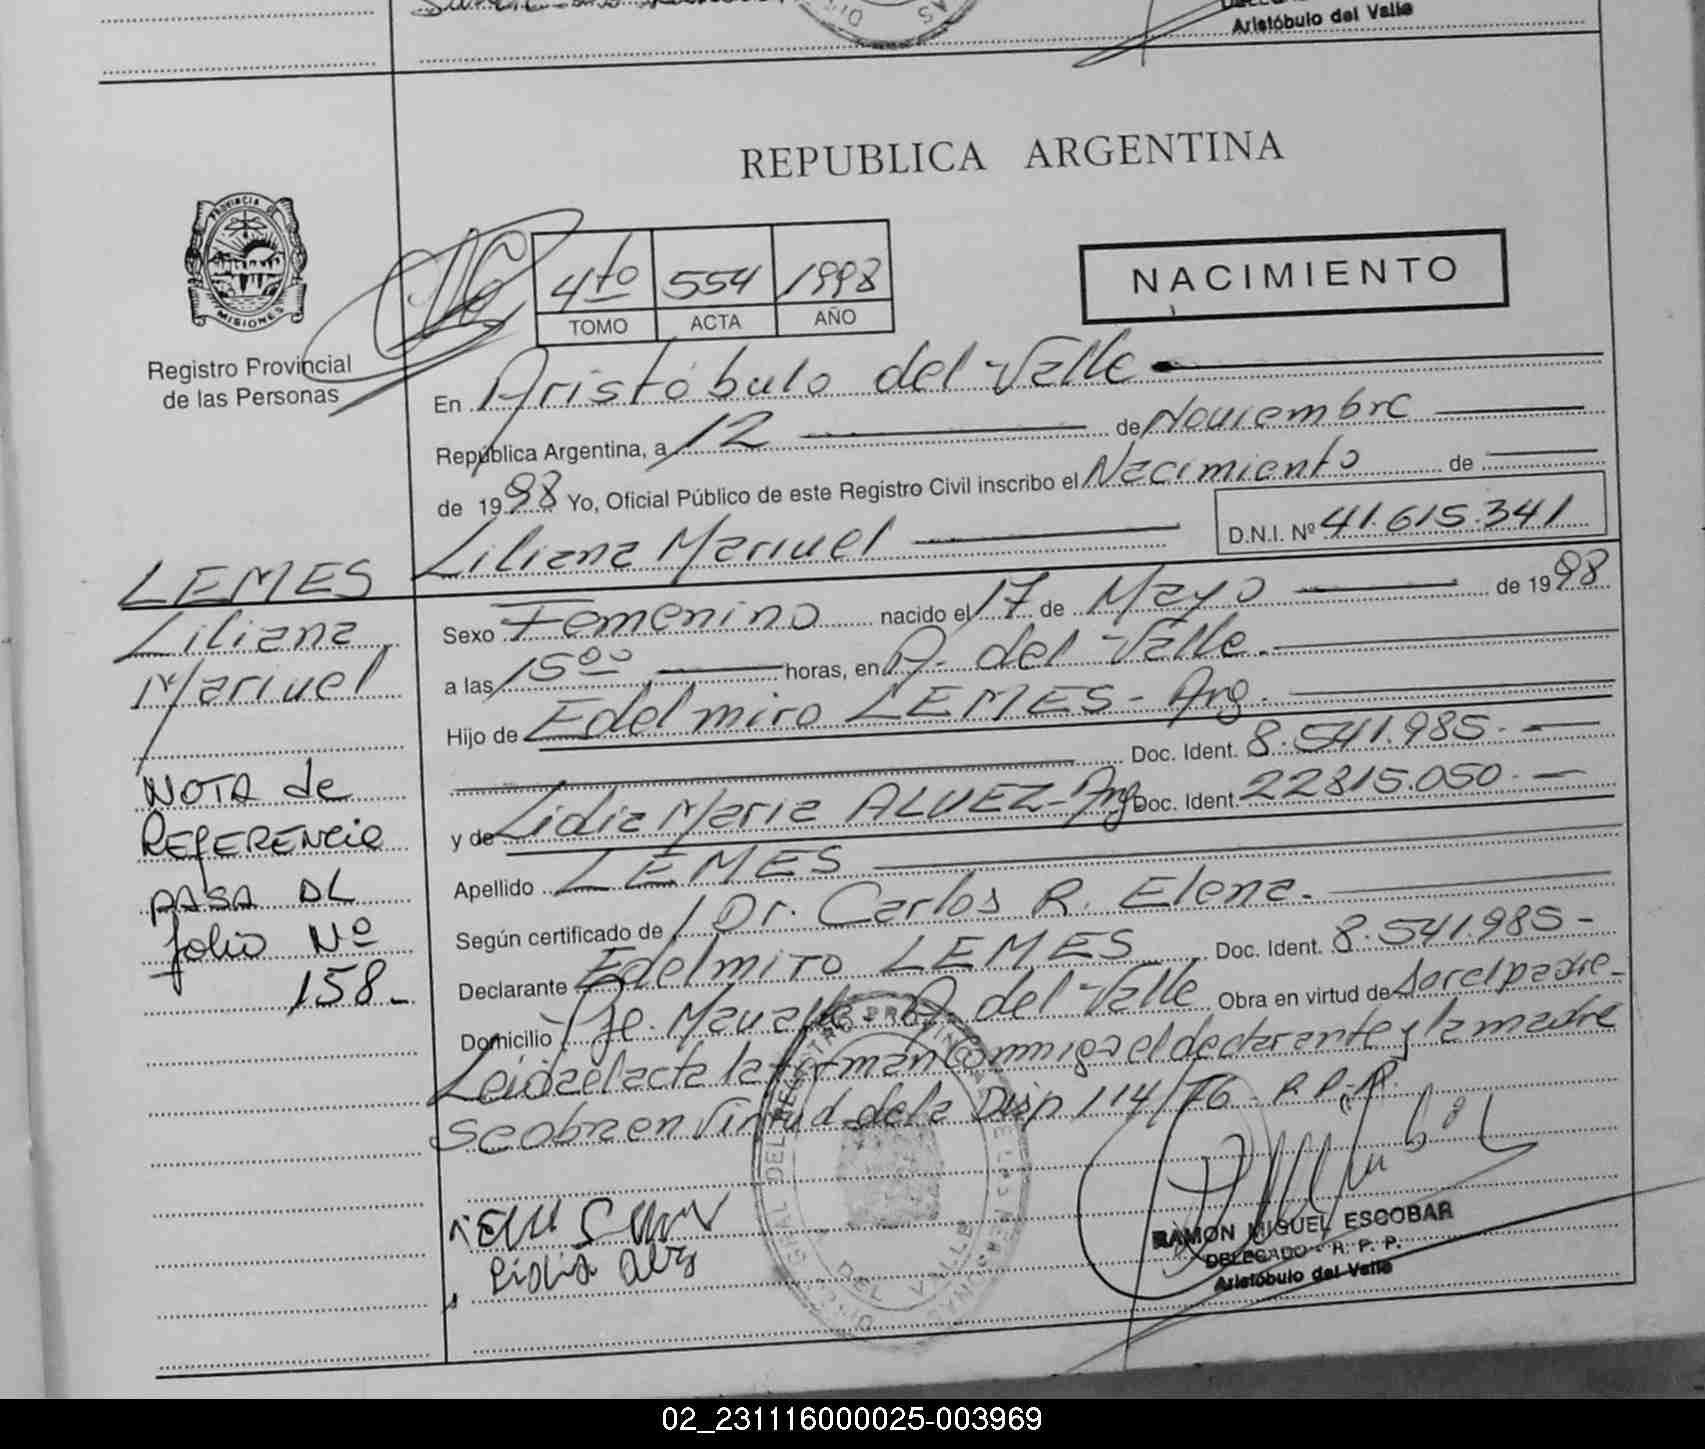 Aristóbulo del Valle
REPUBLICA ARGENTINA
PROVINCIA DE
MISIONES
Registro Provincial
de las Personas
4to 554 1998
TOMO ACTA AÑO
NACIMIENTO
En Aristóbulo del Valle
República Argentina, a 12 de Noviembre
de 1998 Yo, Oficial Público de este Registro Civil inscribo el Nacimiento de
Liliana Marivel D.N.I. Nº 41.615.341
LEMES
Liliana
Marivel
NOTA de
REFERENCIA
PASA AL
folio Nº
158.-
Sexo Femenino nacido el 17 de Mayo de 1998
a las 15 00 horas, en A. del Valle.
Hijo de Edelmiro LEMES - Arg.
Doc. Ident. 8.541.985.-
y de Lidia Maria ALVEZ - Arg Doc. Ident. 22815.050.-
Apellido LEMES
Según certificado de Dr. Carlos R. Elena.
Declarante Edelmiro LEMES Doc. Ident. 8.541.985-
Domicilio Pje. A. del Valle Obra en virtud de Ser el padre-
Leida el acta la firman Conmigo el declarante y la madre
se obra en Virtud de la Disp 114/76 - R.P.P.
Lidia
RAMON MIGUEL ESCOBAR
DELEGADO - R. P. P.
Aristóbulo del Valle
DEL VALLE
02_231116000025-003969